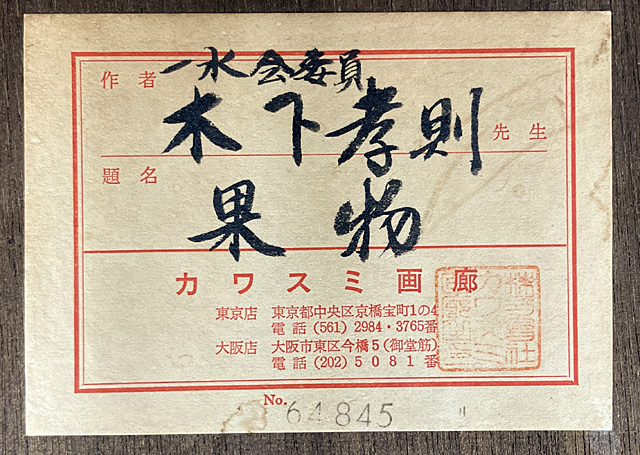 作者 一水会委員
木下孝則 先生
題名
果物
カワスミ画廊
東京店 東京都中央区京橋宝町1の4
電話 (561) 2984・3765番
大阪店 大阪市東区今橋5(御堂筋)
電話 (202) 5081番
No. 64845